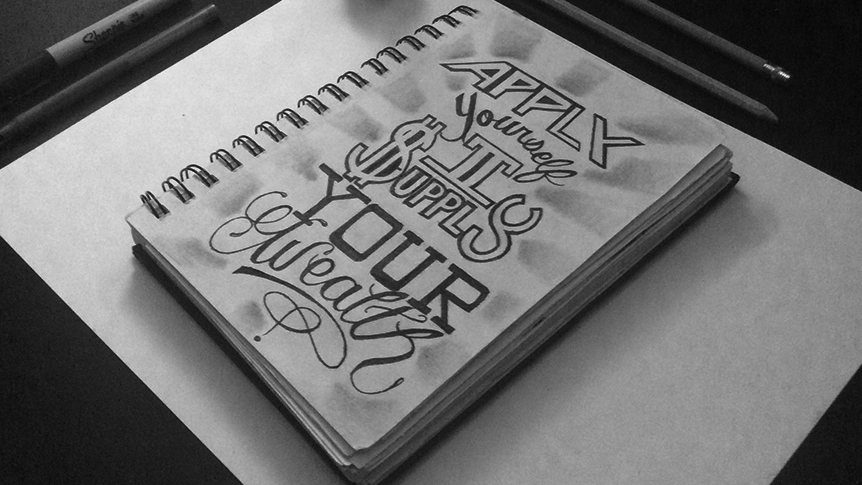 Sharpie
APPLY
yourself
IT
$UPPLYS
YOUR
Wealth.